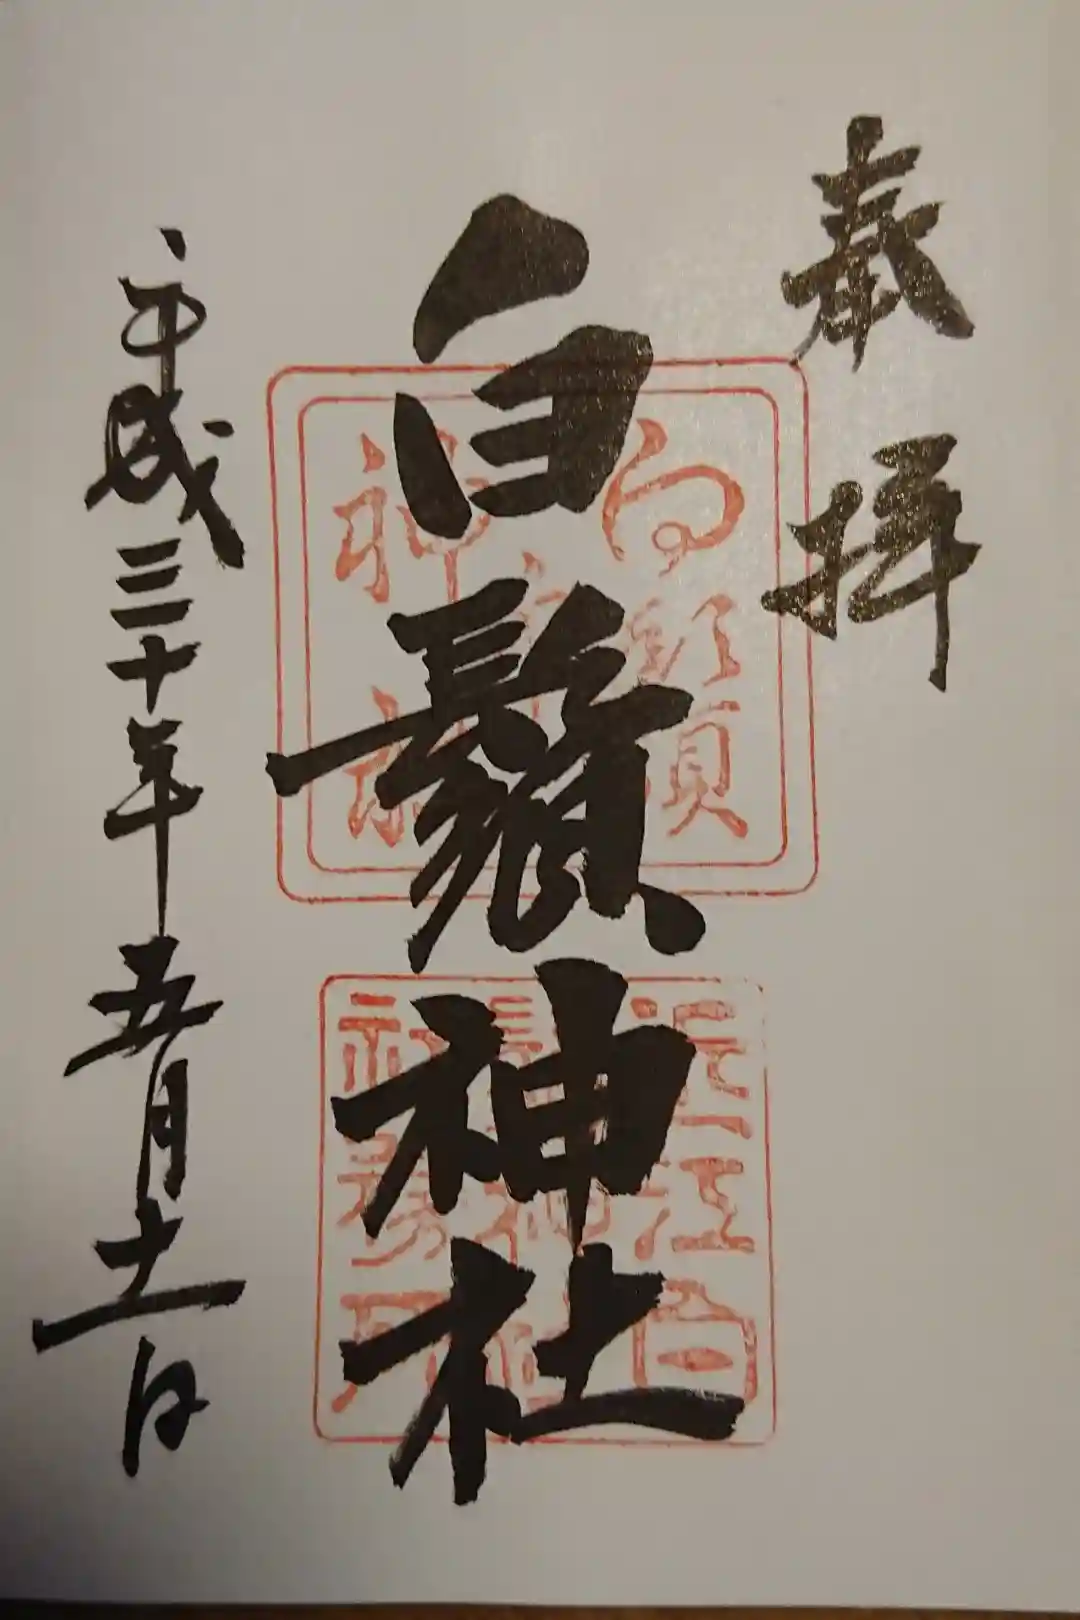 奉拝
白鬚神社
平成三十年五月十一日
白鬚
神社
近江白
鬚神社
社務所